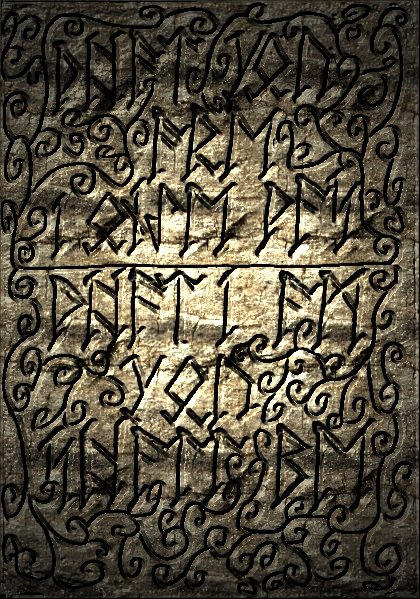 ᚹᚺᚨᛏ ᚤᛟᚢ
ᚨᚱᛖ
ᛁ ᛟᚾᚲᛖ ᚹᚨᛋ
ᚹᚺᚨᛏ ᛁ ᚨᛗ
ᚤᛟᚢ
ᛋᚺᚨᛚᛚ ᛒᛖ